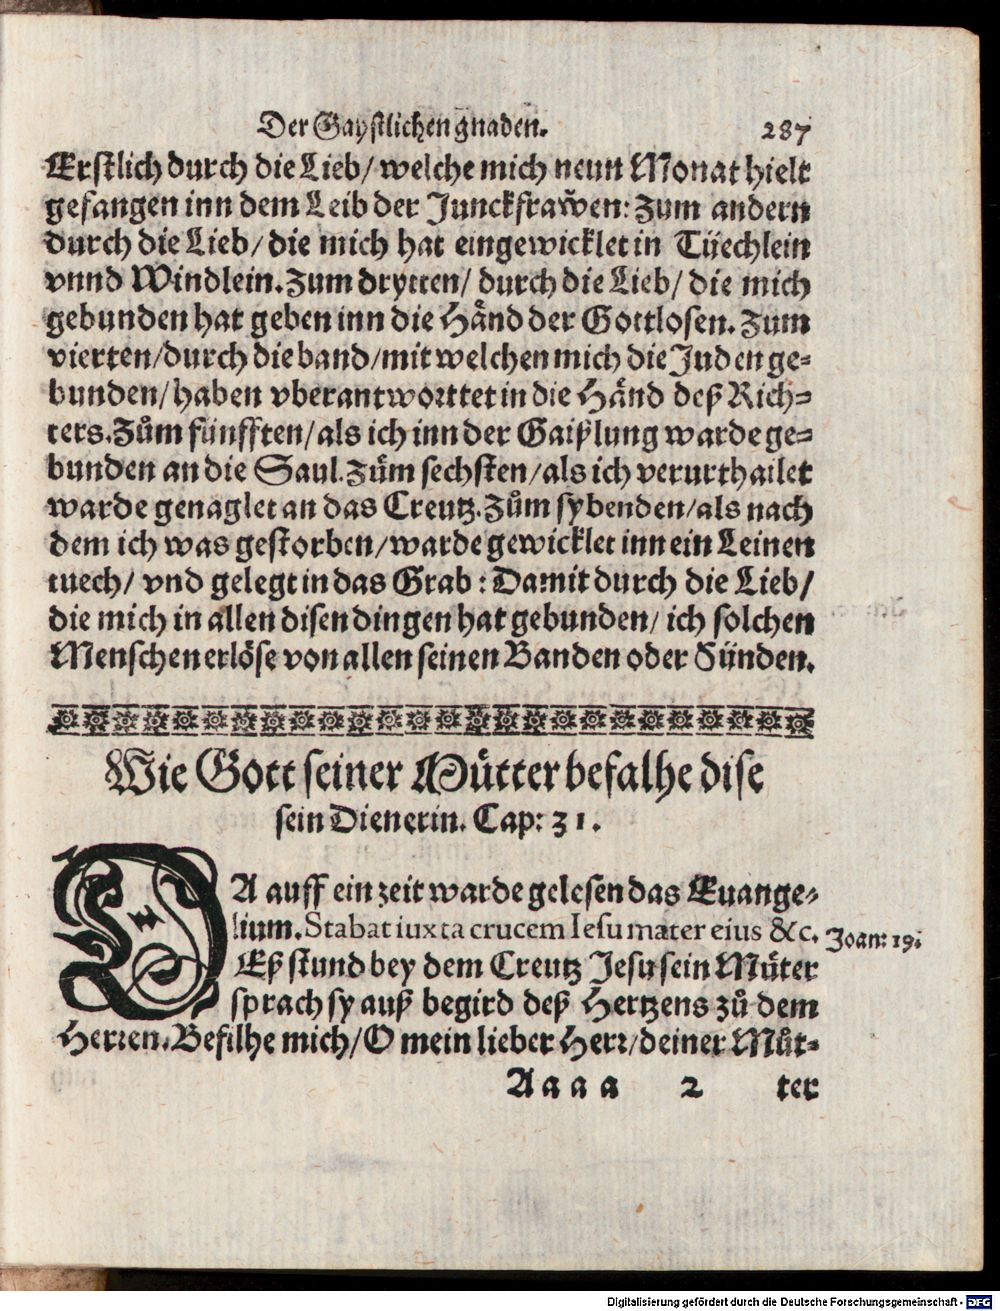 Der Gaystlichen gnaden. 287
Erstlich durch die Lieb/ welche mich neun Monat hielt
gefangen inn dem Leib der Junckfraw̃en: Zum andern
durch die Lieb/ die mich hat eingewicklet in Tüechlein
vnnd Windlein. Zum drytten/ durch die Lieb/ die mich
gebunden hat geben inn die Hånd der Gottlosen. Zum
vierten/ durch die band/ mit welchen mich die Juden ge-
bunden/ haben vberantworttet in die Hånd deß Rich-
ters. Zům fünfften/ als ich inn der Gaißlung warde ge-
bunden an die Saul. Zům sechsten/ als ich verurthailet
warde genaglet an das Creutz. Zům sybenden/ als nach
dem ich was gestorben/ warde gewicklet inn ein Leinen
tuech/ vnd gelegt in das Grab: Damit durch die Lieb/
die mich in allen disen dingen hat gebunden/ ich solchen
Menschen erlöse von allen seinen Banden oder Sünden.
Wie Gott seiner Můtter befalhe dise
sein Dienerin. Cap: 31.
DA auff ein zeit warde gelesen das Euange-
lium. Stabat iuxta crucem Iesu mater eius &c. Joan: 19.
Eß stund bey dem Creutz Jesu sein Můter
sprach sy auß begird deß Hertzens zů dem
Herren. Befilhe mich/ O mein lieber Herr/ deiner Můt-
Aaaa 2 ter
Digitalisierung gefördert durch die Deutsche Forschungsgemeinschaft - DFG